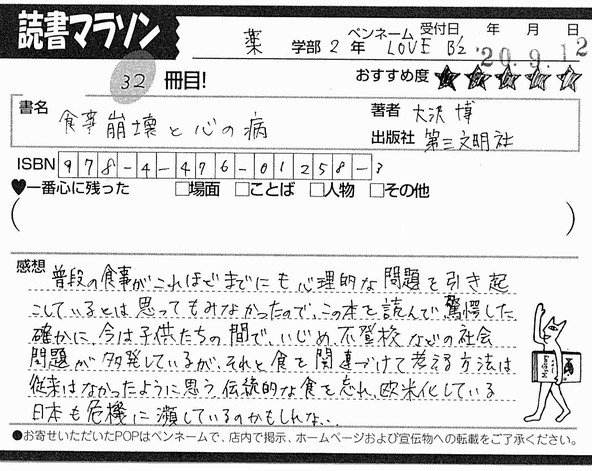 読書マラソン
32 冊目!
薬 学部 2 年
ペンネーム LOVE B'z
受付日 年 月 日
20.9.12
おすすめ度 ★★★★★
書名 食事崩壊と心の病
著者 大沢 博
出版社 第三文明社
ISBN 978-4-476-01258-3
♥一番心に残った □場面 □ことば □人物 □その他
( )
感想 普段の食事がこれほどまでにも心理的な問題を引き起
こしているとは思ってもみなかったので、この本を読んで驚愕した
確かに、今は子供たちの間で、いじめ、不登校などの社会
問題が多発しているが、それと食を関連づけて考える方法は
従来はなかったように思う。伝統的な食を忘れ、欧米化している
日本も危機に瀕しているのかもしれな...
●お寄せいただいたPOPはペンネームで、店内で掲示、ホームページおよび宣伝物への転載をご了承ください。